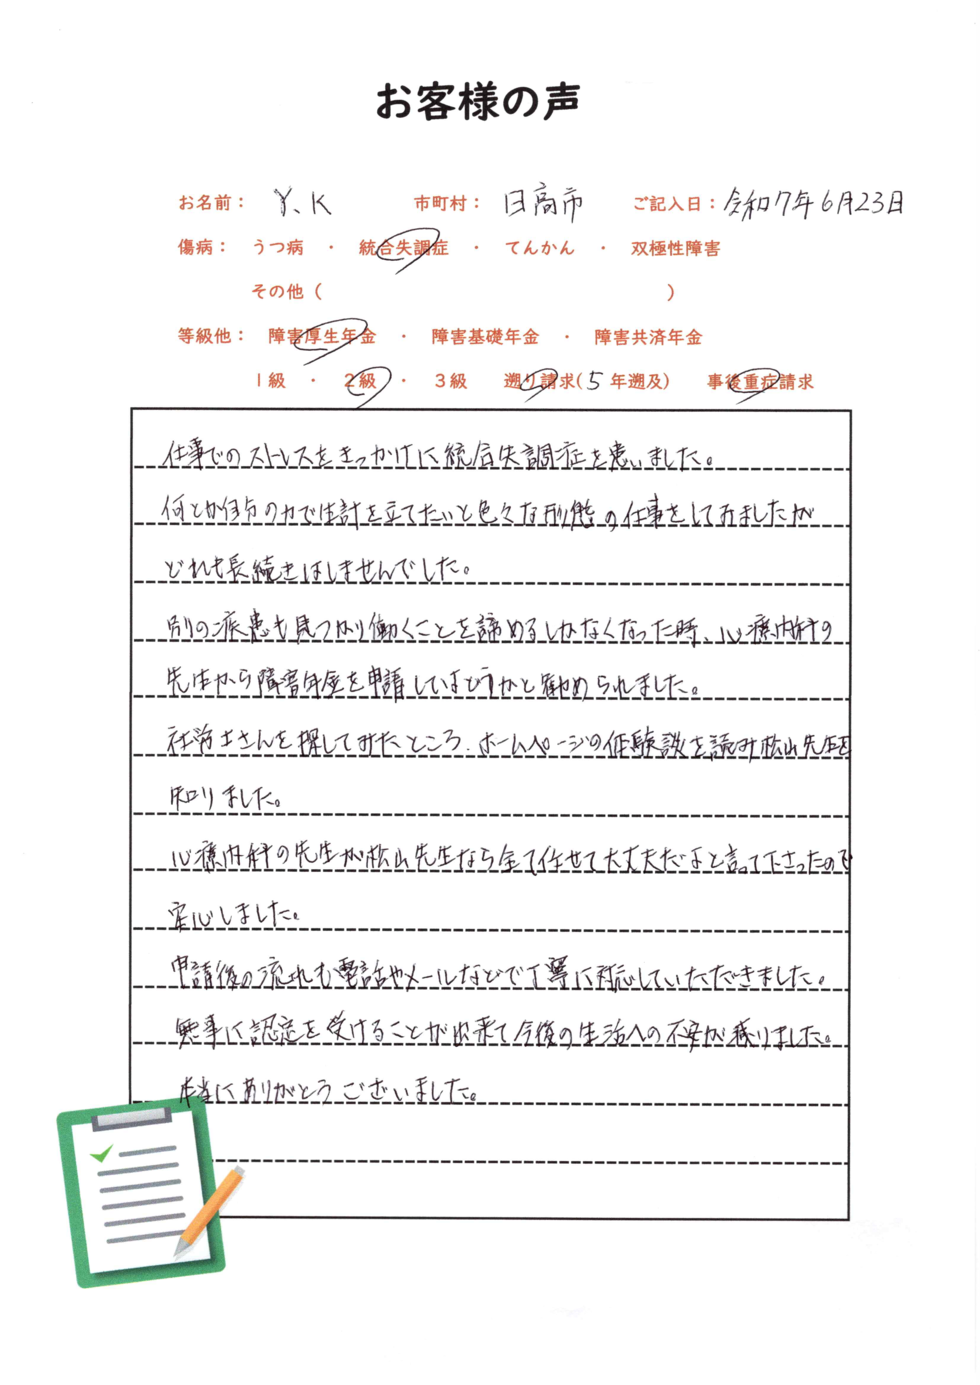 お客様の声
お名前： Y.K 市町村： 日高市 ご記入日： 令和7年6月23日
傷病： うつ病 ・ 統合失調症 ・ てんかん ・ 双極性障害
その他（ ）
等級他： 障害厚生年金 ・ 障害基礎年金 ・ 障害共済年金
1級 ・ 2級 ・ 3級 遡り請求(5年遡及) 事後重症請求
仕事でのストレスをきっかけに統合失調症を患いました。
何とか自分の力で生計を立てたいと色々な形態の仕事をしてみましたが
どれも長続きはしませんでした。
別の疾患も見つかり働くことを諦めるしかなくなった時、心療内科の
先生から障害年金を申請してはどうかと勧められました。
社労士さんを探してみたところ、ホームページの体験談を読み松山先生を
知りました。
心療内科の先生が松山先生なら全て任せて大丈夫だよと言って下さったので
安心しました。
申請後の流れも電話やメールなどで丁寧に対応していただきました。
無事に認定を受けることが出来て今後の生活への不安が減りました。
本当にありがとうございました。